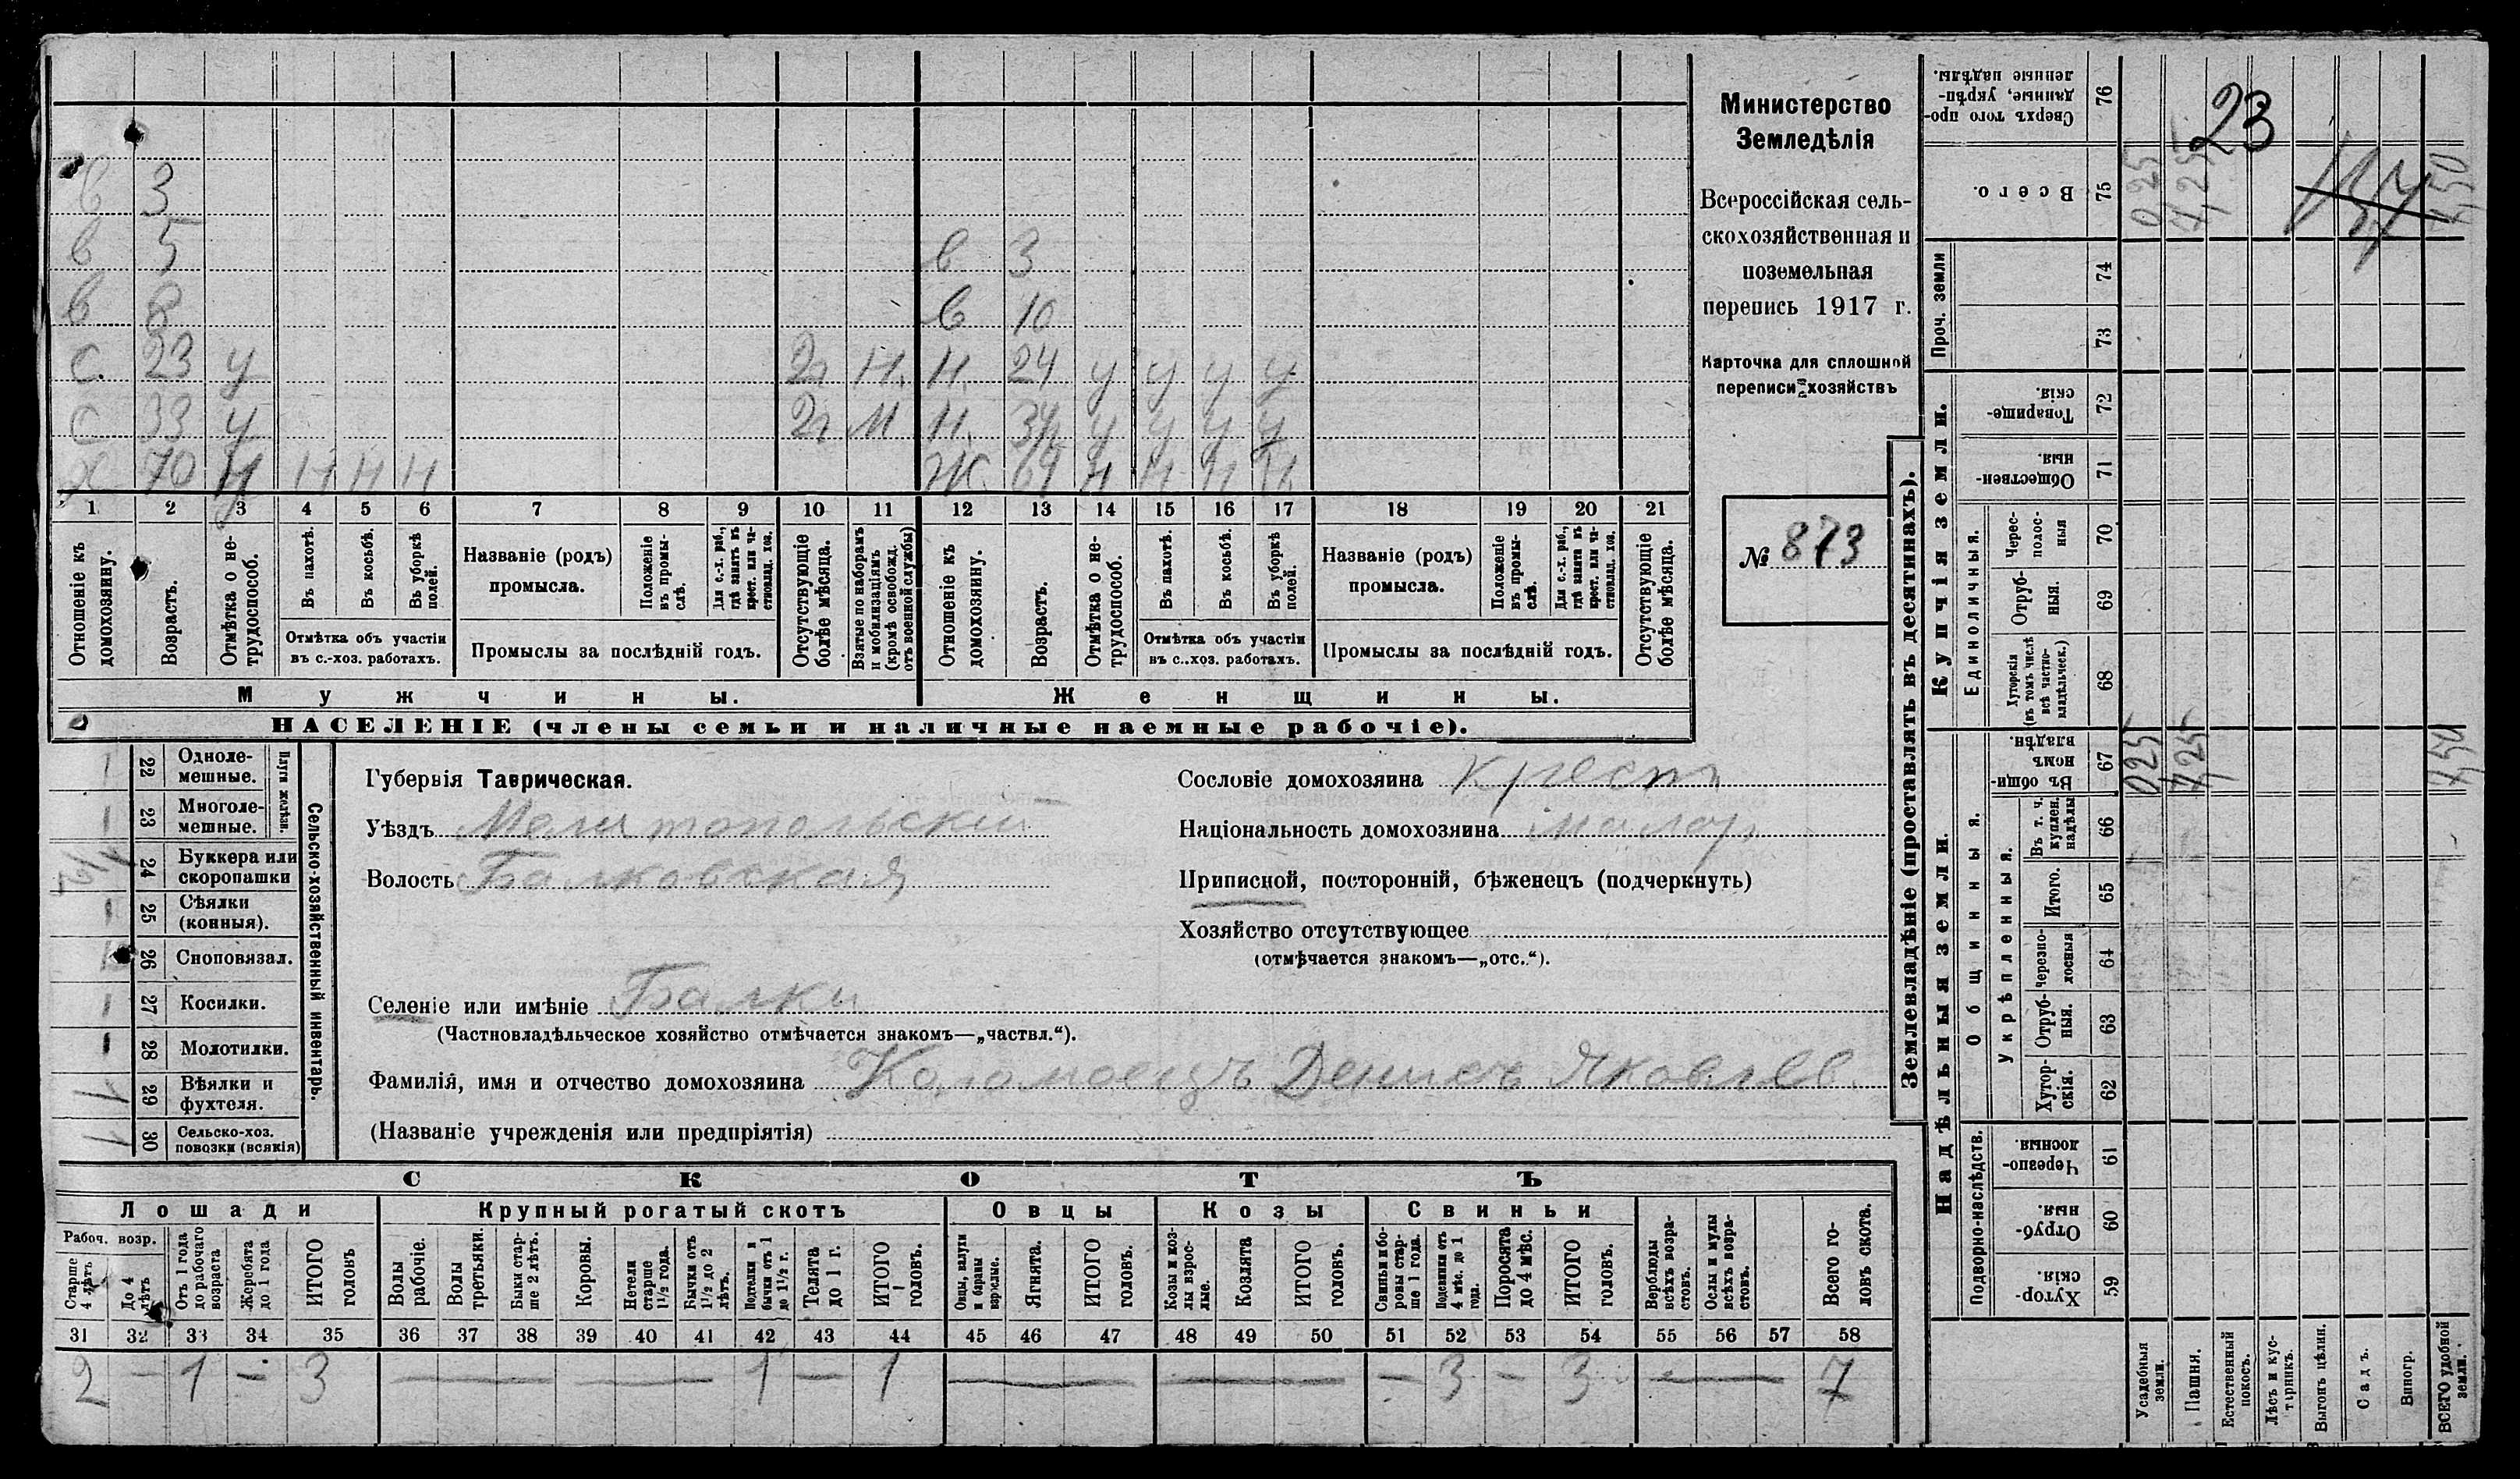 в 3
в 5 в 3
в 8 в 10
С. 23 у 2г Н. Н. 24 у у у у
С 33 у 2г М Н. 34 у у у у
Х 70 Н Н Н Н Ж. 69 Н Н Н Н
1 2 3 4 5 6 7 8 9 10 11 12 13 14 15 16 17 18 19 20 21
Отношеніе къ домохозяину.
Возрастъ.
Отмѣтка о не-трудоспособ.
Въ пахотѣ.
Въ косьбѣ.
Въ уборкѣ полей.
Отмѣтка объ участіи
въ с.-хоз. работахъ.
Названіе (родъ)
промысла.
Положеніе въ промы-слѣ.
Для с.-х. раб., гдѣ занятъ въ крест. или ча-стновлад. хоз.
Промыслы за послѣдній годъ.
Отсутствующіе болѣе мѣсяца.
Взятые по наборамъ и мобилизаціямъ (кромѣ освобожд. отъ военной службы)
Отношеніе къ домохозяину.
Возрастъ.
Отмѣтка о не-трудоспособ.
Въ пахотѣ.
Въ косьбѣ.
Въ уборкѣ полей.
Отмѣтка объ участіи
въ с..хоз. работахъ.
Названіе (родъ)
промысла.
Положеніе въ промы-слѣ.
Для с.-х. раб., гдѣ занята въ крест. или ча-стновлад. хоз.
Промыслы за послѣдній годъ.
Отсутствующіе болѣе мѣсяца.
Мужчины. Женщины.
НАСЕЛЕНІЕ (члены семьи и наличные наемные рабочіе).
Министерство
Земледѣлія
Всероссійская сель-
скохозяйственная и
поземельная
перепись 1917 г.
Карточка для сплошной
переписи хозяйствъ
№ 873
Сельско-хозяйственный инвентарь.
Плуги желѣзн.
1 22 Одноле-
мешные.
1 23 Многоле-
мешные.
24 Буккера или
скоропашки
1 25 Сѣялки
(конныя).
26 Сноповязал.
1 27 Косилки.
1 28 Молотилки.
1 29 Вѣялки и
фухтеля.
1 30 Сельско-хоз.
повозки (всякія)
Губернія Таврическая.
Уѣздъ Мелитопольскій
Волость Балковская
Селеніе или имѣніе Балки
(Частновладѣльческое хозяйство отмѣчается знакомъ—„частвл.“).
Фамилія, имя и отчество домохозяина Коломоецъ Денисъ Яковлев.
(Названіе учрежденія или предпріятія)
Сословіе домохозяина крест
Національность домохозяина малор
Приписной, посторонній, бѣженецъ (подчеркнуть)
Хозяйство отсутствующее
(отмѣчается знакомъ—„отс.“).
СКОТЪ
Лошади Крупный рогатый скотъ Овцы Козы Свиньи
Рабоч. возр.
Старше 4 лѣтъ
До 4 лѣтъ
Отъ 1 года до рабочаго возраста
Жеребята до 1 года
ИТОГО головъ
Волы рабочіе.
Волы третьяки.
Быки стар-ше 2 лѣтъ.
Коровы.
Нетели старше 1½ года.
Бычки отъ 1½ до 2 лѣтъ.
Подтелки и бычки отъ 1 до 1½ г.
Телята до 1 г.
ИТОГО головъ.
Овцы, валухи и бараны взрослые.
Ягнята.
ИТОГО головъ.
Козы и коз-лы взрос-лые.
Козлята
ИТОГО головъ.
Свиньи и бо-ровы стар-ше 1 года.
Подсвинки отъ 4 мѣс. до 1 года.
Поросята до 4 мѣс.
ИТОГО головъ.
Верблюды всѣхъ возра-стовъ.
Ослы и мулы всѣхъ возра-стовъ.
Всего го-ловъ скота.
31 32 33 34 35 36 37 38 39 40 41 42 43 44 45 46 47 48 49 50 51 52 53 54 55 56 57 58
2 — 1 — 3 — — 1 — 1 — — — 3 — 3 — 7
Землевладѣніе (проставлять въ десятинахъ).
Надѣльныя земли. Купчія земли. Проч. земли
Подворно-наслѣдств.
Общинныя.
Укрѣпленныя.
Единоличныя.
Хутор-скія. 59
Отруб-ныя. 60
Черезпо-лосныя 61
Хутор-скія. 62
Отруб-ныя. 63
Черезпо-лосныя 64
Итого. 65
Въ т. ч. куплен. надѣлы 66
Въ общи-номъ владѣн. 67 0,25 4,25 4,50
Хуторскія (въ томъ числѣ всѣ частно-владѣльческ.) 68
Отруб-ныя. 69
Черес-полос-ныя 70
Обществен-ныя. 71
Товарище-скія. 72
73
74
Всего. 75 0,25 4,25 4,50
Сверхъ того про-данные, укрѣп-ленные надѣлы. 76
23
Усадебныя земли.
Пашня.
Естественный покосъ.
Лѣсъ и кус-тарникъ.
Выгонъ цѣлин.
Садъ.
Виногр.
ВСЕГО удобной земли.